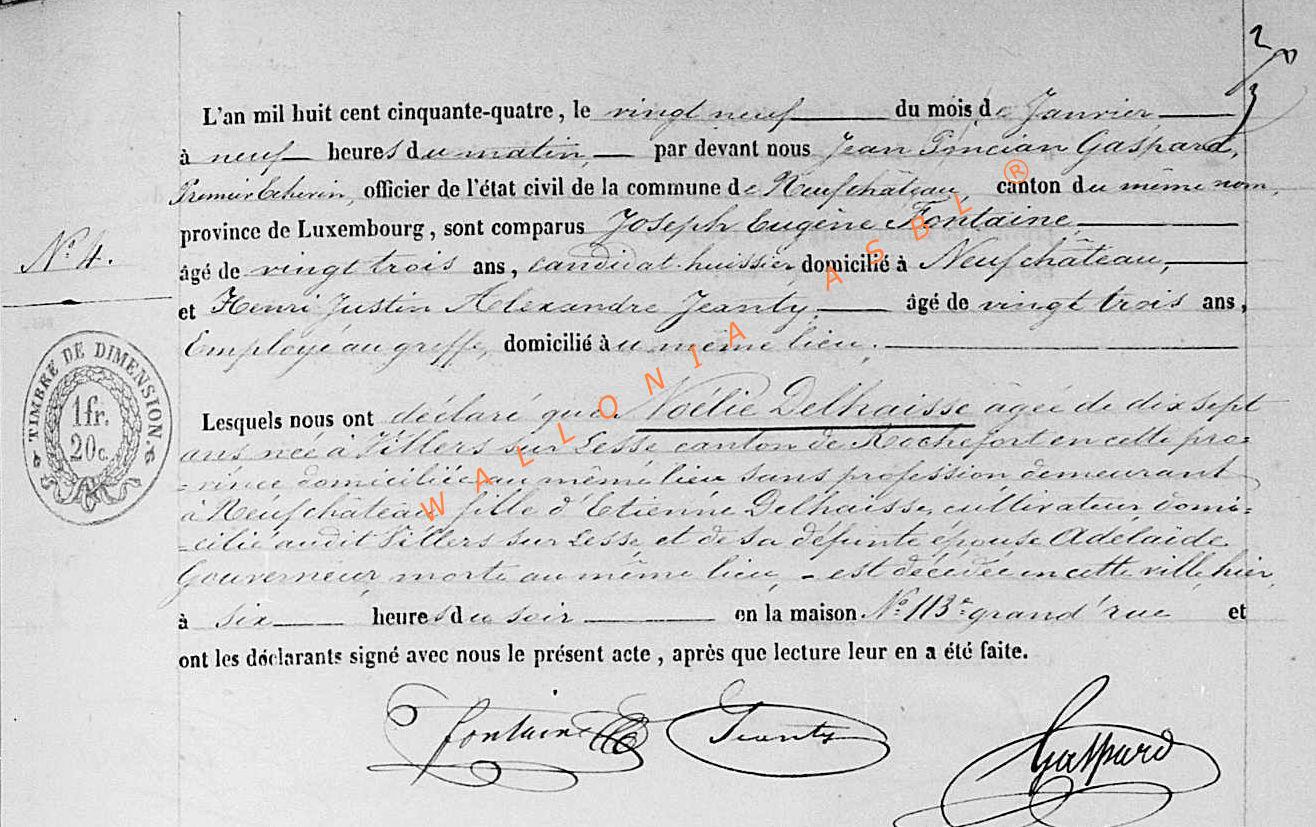 2
3
L'an mil huit cent cinquante-quatre, le vingt neuf du mois de Janvier
à neuf heures du matin par devant nous Jean Poncian Gaspard,
Premier Echevin, officier de l'état civil de la commune de Neufchâteau, canton du même nom,
province de Luxembourg, sont comparus Joseph Eugène Fontaine
N.° 4.
âgé de vingt trois ans, candidat-huissier, domicilié à Neufchâteau,
et Henri Justin Alexandre Jeanty, âgé de vingt trois ans,
Employé au greffe, domicilié au même lieu;
TIMBRE DE DIMENSION.
1 fr.
20 c.
Lesquels nous ont déclaré que Noélie Delhaisse âgée de dix sept
ans née à Villers sur Lesse canton de Rochefort en cette pro=
=vince domiciliée au même lieu sans profession demeurant
à Neufchâteau fille d'Etienne Delhaisse, cultivateur, domi=
=cilié audit Villers sur Lesse et de sa défunte épouse Adélaïde
Gouverneur morte au même lieu, - est décédée en cette ville, hier,
à six heures du soir en la maison N.° 113 grand'rue et
ont les déclarants signé avec nous le présent acte, après que lecture leur en a été faite.
Fontaine Jeanty
Gaspard
WALLONIA ASBL ®